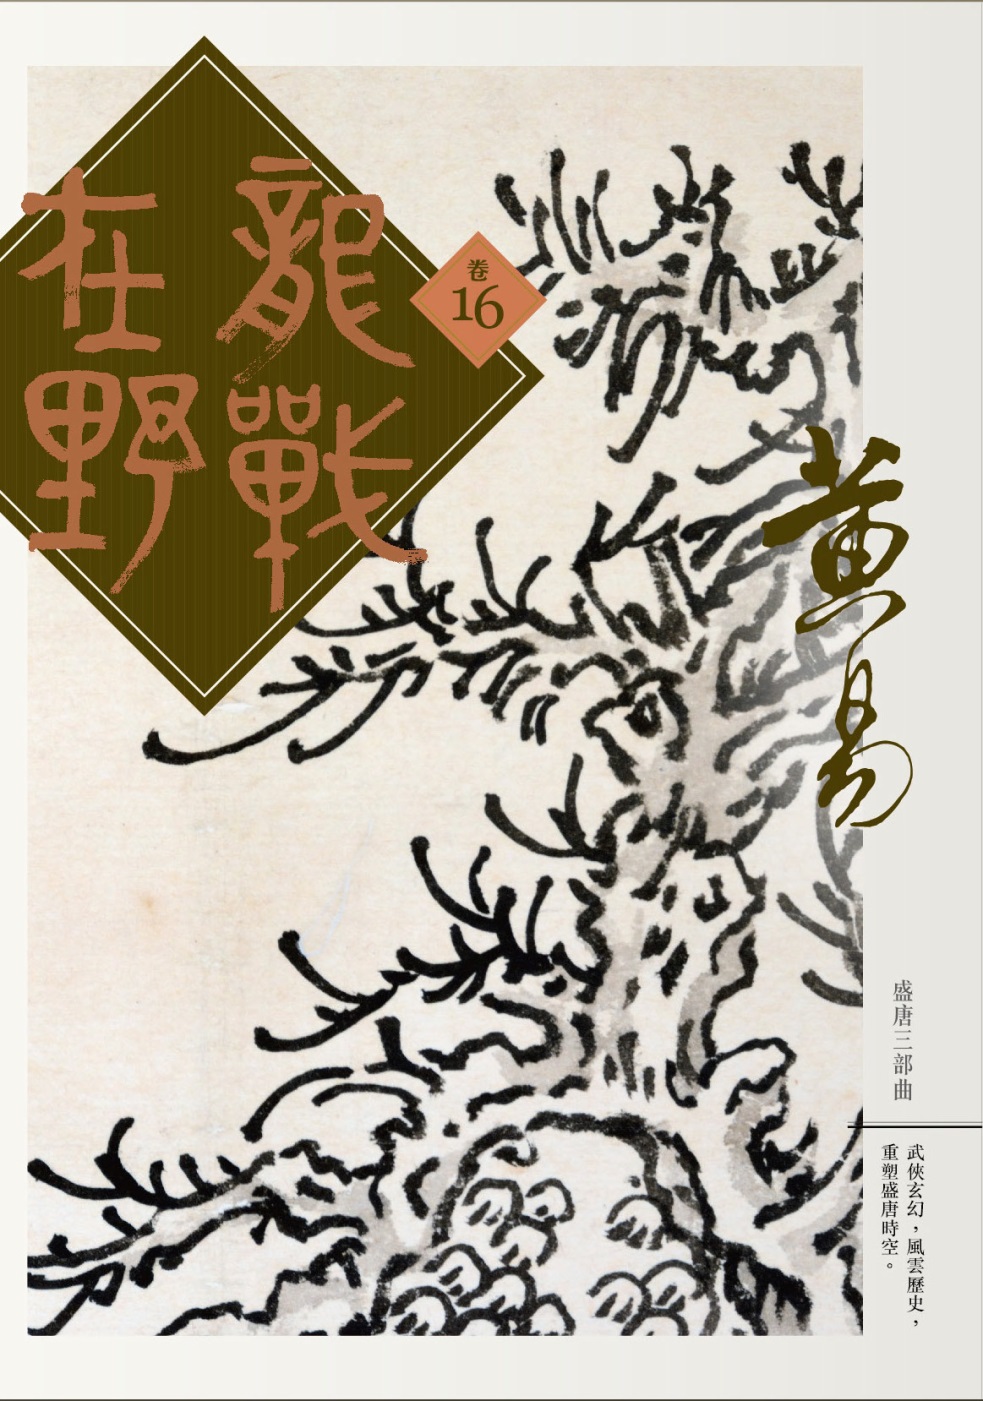 龍戰
在野
卷
16
黃易
盛唐三部曲
武俠玄幻，風雲歷史，
重塑盛唐時空。